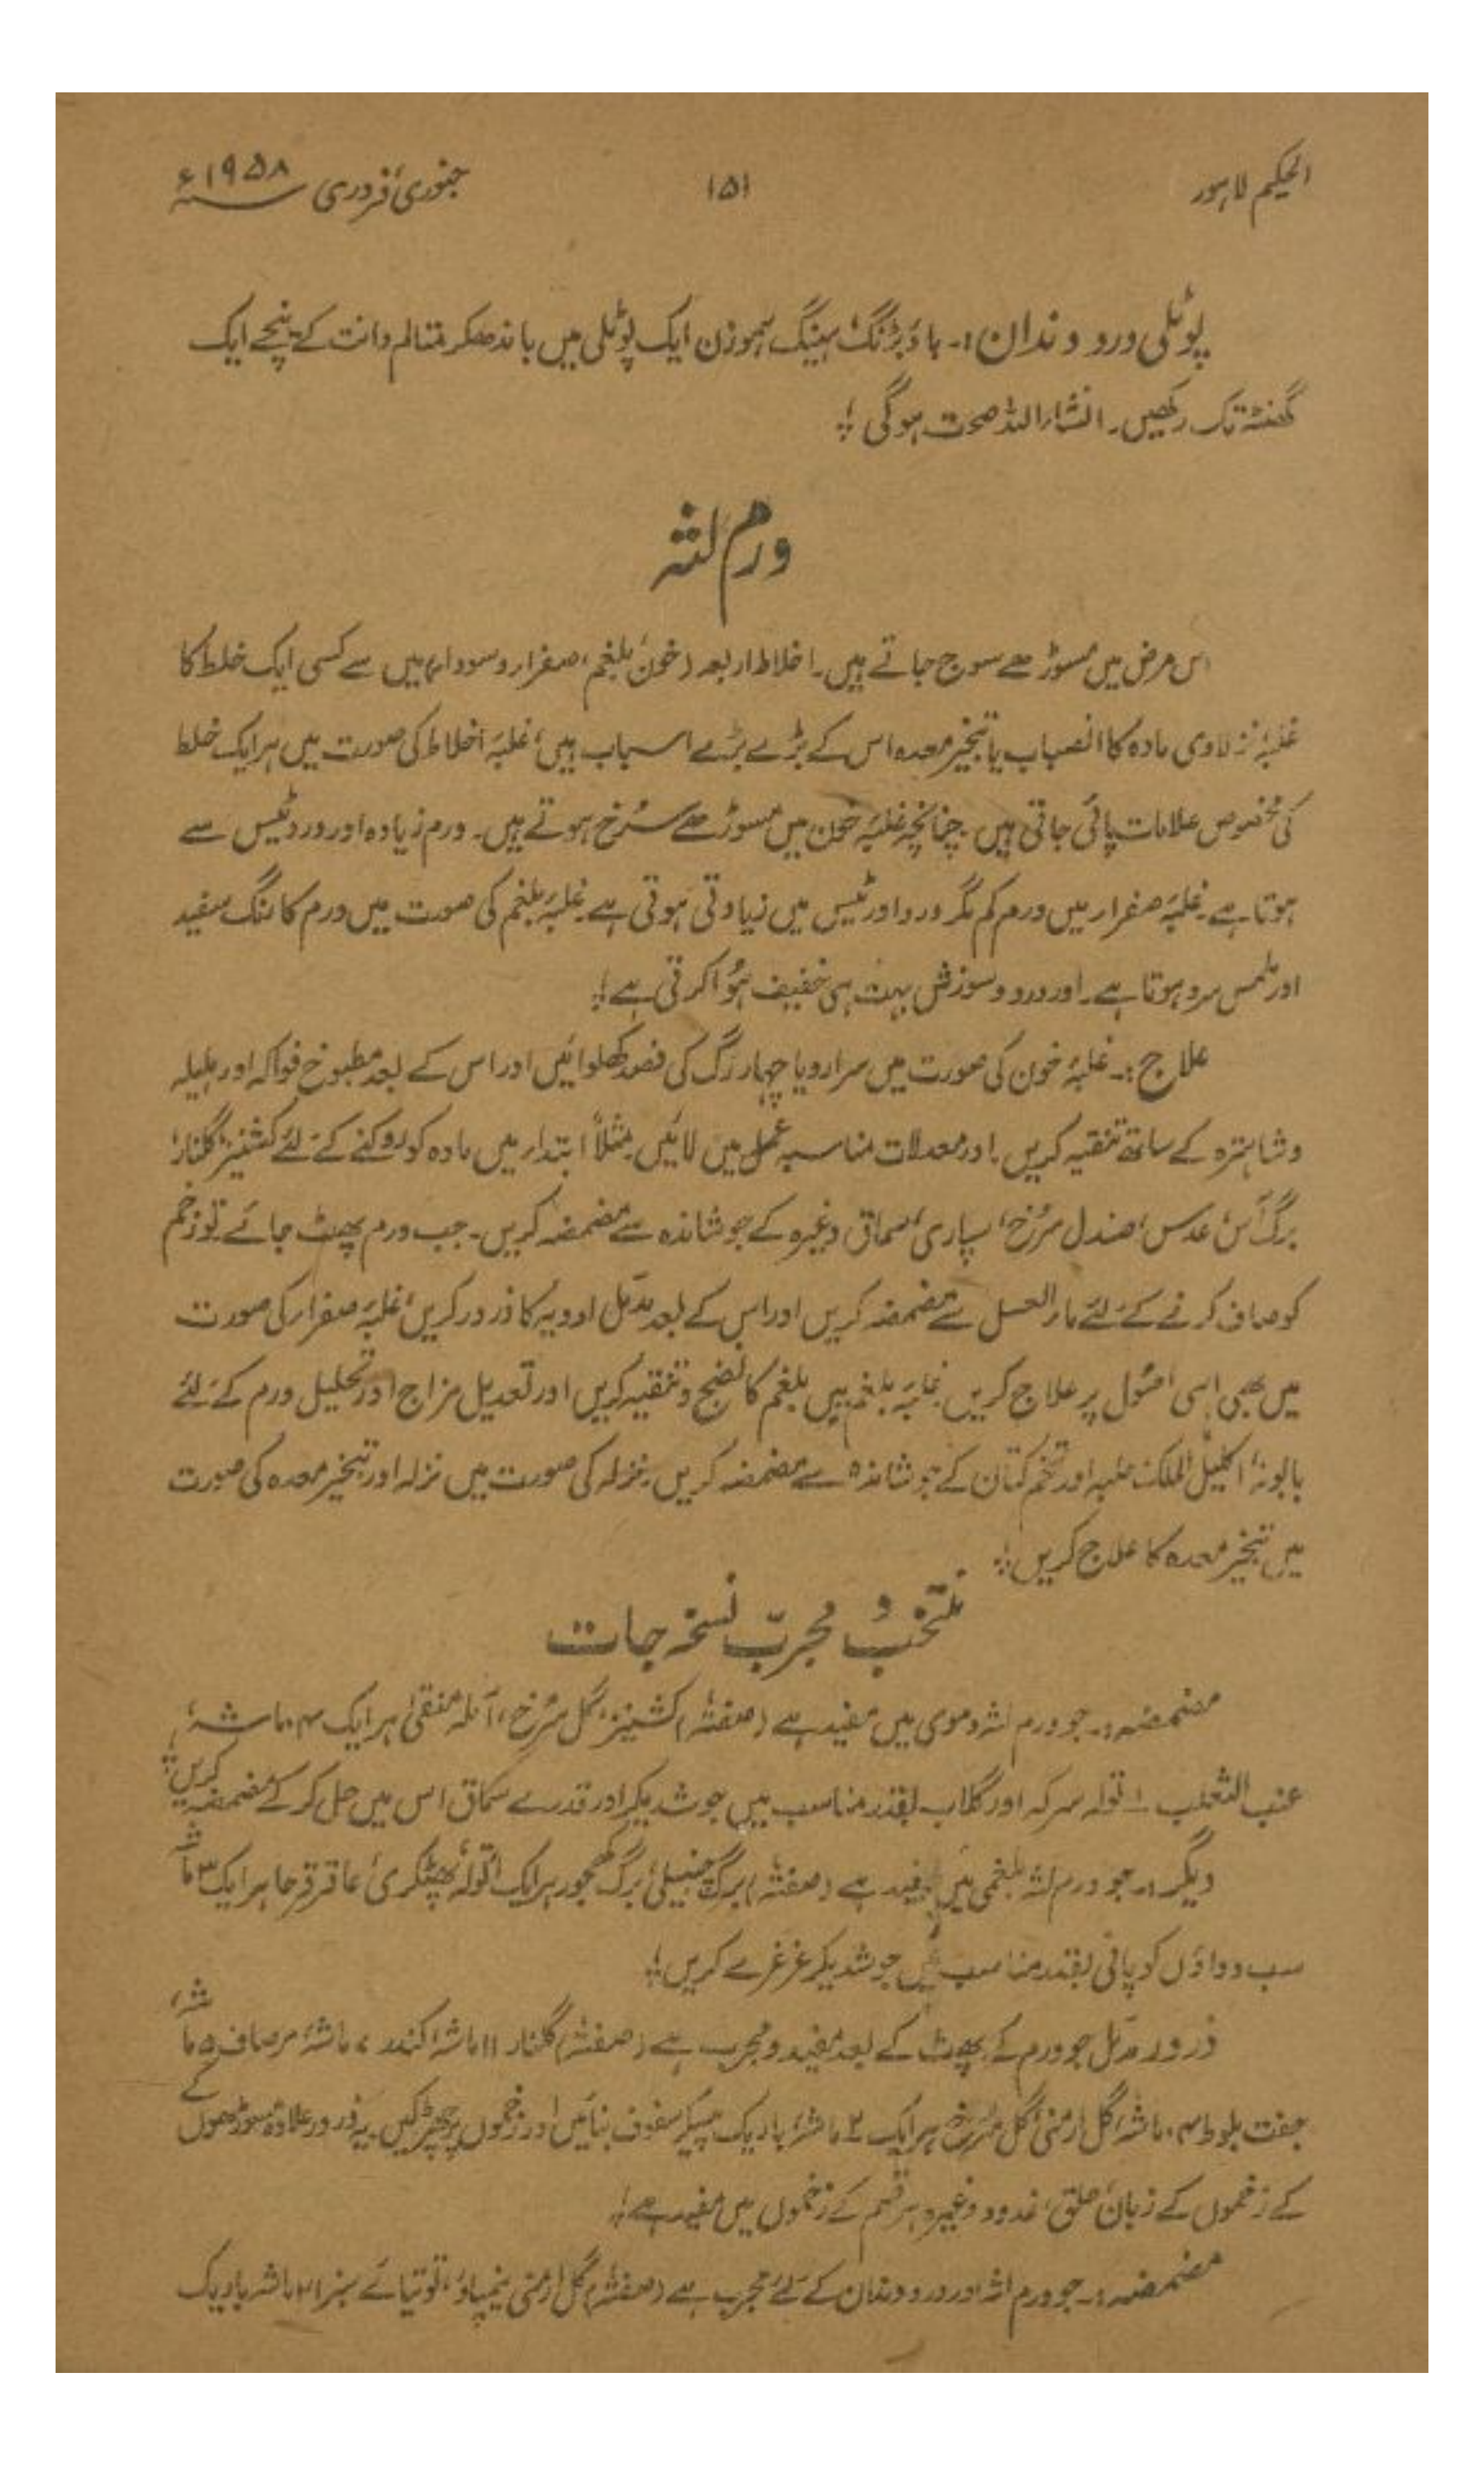 الحکیم لاہور
۱۵۱
جنوری، فروری ۱۹۵۸ء
پوٹلی درد دندان:۔ باؤبڑنگ، ہینگ ہموزن ایک پوٹلی میں باندھکر متالم دانت کے نیچے ایک
گھنٹہ تک رکھیں۔ انشاء اللہ صحت ہوگی؛
ورم لثہ
اس مرض میں مسوڑھے سوج جاتے ہیں۔ اخلاط اربعہ (خون، بلغم، صفراء و سوداء) میں سے کسی ایک خلط کا
غلبہ، نزلاوی مادہ کا انصباب یا تبخیر معدہ اس کے بڑے بڑے اسباب ہیں، غلبۂ اخلاط کی صورت میں ہر ایک خلط
کی مخصوص علامات پائی جاتی ہیں۔ چنانچہ غلبۂ خون میں مسوڑھے سُرخ ہوتے ہیں۔ ورم زیادہ اور درد ٹیس سے
ہوتا ہے۔ غلبۂ صفراء میں ورم کم مگر درد اور ٹیس میں زیادتی ہوتی ہے۔ غلبۂ بلغم کی صورت میں ورم کا رنگ سفید
اور لمس سرد ہوتا ہے۔ اور درد و سوزش بہت ہی خفیف ہُوا کرتی ہے؛
علاج:۔ غلبۂ خون کی صورت میں سرارو یا چہار رگ کی فصد کھلوائیں اور اس کے بعد مطبوخ فواکہ اور ہلیلہ
و شاہترہ کے ساتھ تنقیہ کریں۔ اور معدلات مناسبہ عمل میں لائیں۔ مثلاً ابتداء میں مادہ کو روکنے کے لئے کشنیز، گلنار،
برگ آس، عدس، صندل سُرخ، سپاری، سماق وغیرہ کے جوشاندہ سے مضمضہ کریں۔ جب ورم پھٹ جائے تو زخم
کو صاف کرنے کے لئے ماء العسل سے مضمضہ کریں اور اس کے بعد مدمّل ادویہ کا ذرور کریں، غلبۂ صفراء کی صورت
میں بھی اسی اصُول پر علاج کریں۔ غلبۂ بلغم میں بلغم کا نضج و تنقیہ کریں اور تعدیل مزاج اور تحلیل ورم کے لئے
بابونہ، اکلیل الملک، حلبہ اور تخم کتان کے جوشاندہ سے مضمضہ کریں۔ نزلہ کی صورت میں نزلہ اور تبخیر معدہ کی صورت
میں تبخیر معدہ کا علاج کریں؛
منتخب و مجرّب نسخہ جات
مضمضہ:۔ جو ورم لثہ دموی میں مفید ہے (صفتہٗ) کشنیز، گل سُرخ، آملہ منقیٰ ہر ایک ۴ ماشہ،
عنب الثعلب ۱ تولہ سرکہ اور گلاب بقدر مناسب میں جوش دیکر اور قدرے سماق اس میں حل کر کے مضمضہ کریں؛
دیگر:۔ جو ورم لثہ بلغمی میں مفید ہے (صفتہٗ) برگ چنبیلی، برگ کھجور ہر ایک ا تولہ، پھٹکری، عاقرقرحا ہر ایک ۳ ماشہ
سب دواؤں کو پانی بقدر مناسب میں جوشدیکر غرغرے کریں؛
ذرور مدمّل جو ورم کے پھوٹ کے بعد مفید و مجرب ہے (صفتہٗ) گلنار ۱۱ ماشہ، کندر ۷ ماشہ، مرصاف ۵ ماشہ،
جفت بلوط ۴ ماشہ، گل ارمنی، گل سُرخ ہر ایک ۲ ماشہ، باریک پیسکر سفوف بنائیں اور زخموں پر چھڑکیں۔ یہ ذرور علاوہ مسوڑھوں کے
کے زخموں کے زبان، حلق، غدود وغیرہ ہر قسم کے زخموں میں مفید ہے؛
مضمضہ:۔ جو ورم لثہ اور درد دندان کے لئے مجرب ہے (صفتہٗ) گل ارمنی نیمپاؤ، توتیائے سبز ۲ ماشہ باریک